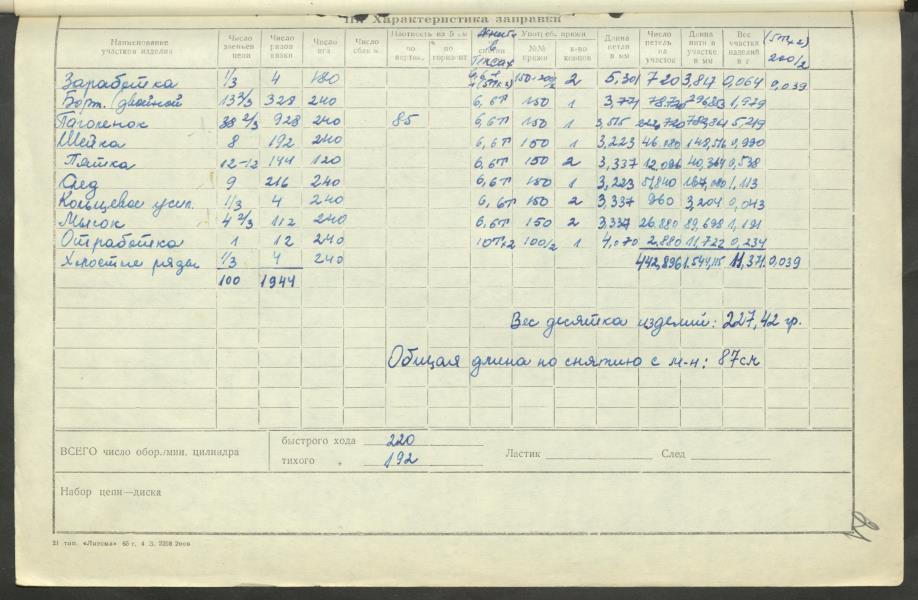 Характеристика заправки
Наименование участков изделия | Число звеньев цепи | Число рядов вязки | Число игл | Число сбавк. | Плотность на 5 см по вертик. | по горизонт. | в тексах | Употреб. пряжи №№ пряжи | к-во концов | Длина петли в мм | Число петель на участок | Длина нити в участке в мм | Вес участка изделий в г | (5т×2) 200/2
Заработка 1/3 4 180 150+200/2 2 5,301 720 3,817 0,064 0,039
Борт. (двойной 13 2/3 328 240 6,6т 150 1 3,771 1,979
Паголенок 38 2/3 928 240 85 6,6т 150 1 3,515 222,720 5,219
Шейка 8 192 240 6,6т 150 1 3,223 46.080 148,516 0,990
Пятка 12-12 144 120 6,6т 150 2 3,337 12,096 40,364 0,538
След 9 216 240 6,6т 150 1 3,223 51,840 167,080 1,113
Кольцевое усил. 1/3 4 240 6,6т 150 2 3,337 960 3,204 0,043
Мысок 4 2/3 112 240 6,6т 150 2 3,337 26.880 89,698 1,191
Отработка 1 12 240 10т×2 100/2 1 4,070 2,880 11,722 0,234
Холостые ряды 1/3 4 240 442,896 1.544,115 11,371 0,039
100 1944
Вес десятка изделий: 227,42 гр.
Общая длина по снятию с м-н: 87см
ВСЕГО число обор./мин. цилиндра
быстрого хода 220
тихого „ 192
Ластик
След
Набор цепи—диска
21 тип. «Литома» 65 г. 4 З. 2208 2000